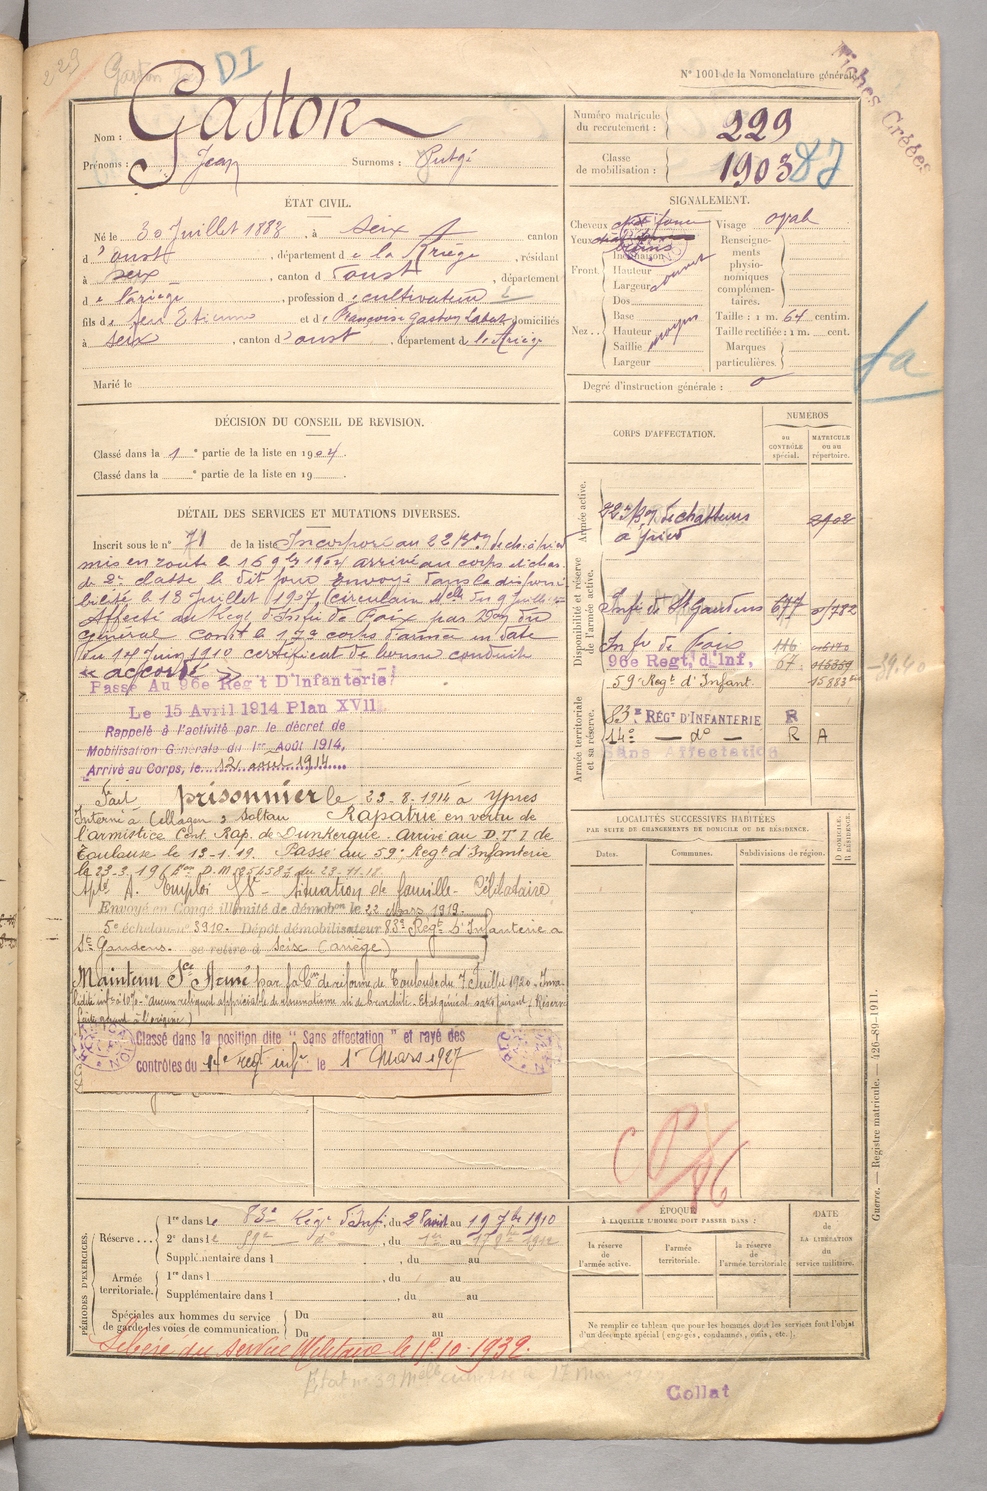 229
Gaston
DI
N° 1001 de la Nomenclature générale.
Fiches Créées
Nom : Gaston
Prénoms : Jean Surnoms :
Numéro matricule du recrutement : 229
Classe de mobilisation : 1903
ÉTAT CIVIL.
Né le 30 Juillet 1883, à Seix canton
d'oust, département de la Ariège, résidant
à Seix, canton d'oust, département
de l'ariège, profession de cultivateur
fils de feu Etienne et de Françoise Gaston Labat domiciliés
à Seix, canton d'oust, département de l'Ariège
Marié le
SIGNALEMENT.
Cheveux
Yeux
Front Inclinaison
Hauteur
Largeur
Dos
Nez Base
Hauteur
Saillie moyen
Largeur
Visage oval
Renseignements physionomiques complémentaires.
Taille : 1 m. 64 centim.
Taille rectifiée : 1 m. cent.
Marques particulières.
Degré d'instruction générale : 0
fa
DÉCISION DU CONSEIL DE REVISION.
Classé dans la 1e partie de la liste en 1904.
Classé dans la e partie de la liste en 19 .
CORPS D'AFFECTATION.
NUMÉROS
au CONTRÔLE spécial.
MATRICULE ou au répertoire.
Armée active.
22e Bon de chasseurs 2902
Disponibilité et réserve de l'armée active.
Infie de St Gaudens 677
Infie de Foix 116
96e Regt. d'Inf, 67
59e Regt d'Infant. 15883
Armée territoriale et sa réserve.
83e RÉGt D'INFANTERIE R
14e — do — R A
Sans Affectation
DÉTAIL DES SERVICES ET MUTATIONS DIVERSES.
Inscrit sous le n° 71 de la liste Incorporé au 22e Bon de ch. à pied
mis en route le 16 9bre 1904 arrivé au corps et chas.
de 2e classe le dit jour Envoyé dans la disponi-
bilité le 13 Juillet 1907, (circulaire Melle du 9 Juillet
Affecté au Régt d'Infie de Foix par Don du
général Comt le 17e corps d'armée en date
du 14 Juin 1910 certificat de bonne conduite
« accordé »
Passé Au 96e Rég't D'Infanterie
Le 15 Avril 1914 Plan XVII
Rappelé à l'activité par le décret de
Mobilisation Générale du 1er Août 1914,
Arrivé au Corps, le 12 août 1914
Fait prisonnier le 23-8-1914 à Ypres
Interné à Cellagen 2 Soltau Rapatrié en vertu de
l'armistice Cent. Rap. de Dunkerque. arrivé au D.T.I. de
Toulouse le 13-1-19. Passé au 59e Regt d'Infanterie
A. Emploi - situation de famille - Célibataire
Envoyé en Congé illimité de démobon le 22 Mars 1919.
5e échelon no 3910. Dépôt démobilisateur 83e Régt d'Infanterie à
St Gaudens. se retire à Seix (ariège)
Maintenu Sce Armé par la Con de réforme de Toulouse du 7 Juillet 1920. Inva-
Classé dans la position dite " Sans affectation " et rayé des
contrôles du 14e regt infie le 1er Mars 1927
LOCALITÉS SUCCESSIVES HABITÉES
PAR SUITE DE CHANGEMENTS DE DOMICILE OU DE RÉSIDENCE.
Dates. Communes. Subdivisions de région. D DOMICILE. R RÉSIDENCE.
86
PÉRIODES D'EXERCICES.
Réserve
1re dans le 83e Régt d'Infie, du 2 août au 19 7bre 1910
2e dans le 59e do, du 1er au 17 1912
Supplémentaire dans l , du au
Armée territoriale.
1re dans l , du au
Supplémentaire dans l , du au
Spéciales aux hommes du service de garde des voies de communication.
Du au
Du au
ÉPOQUE
À LAQUELLE L'HOMME DOIT PASSER DANS :
la réserve de l'armée active.
l'armée territoriale.
la réserve de l'armée territoriale
DATE de LA LIBÉRATION du service militaire.
Ne remplir ce tableau que pour les hommes dont les services font l'objet
d'un décompte spécial (engagés, condamnés, omis, etc.).
Libéré du service Militaire le 15-10-1932.
Collat
Guerre. — Registre matricule. — 426-89-1911.